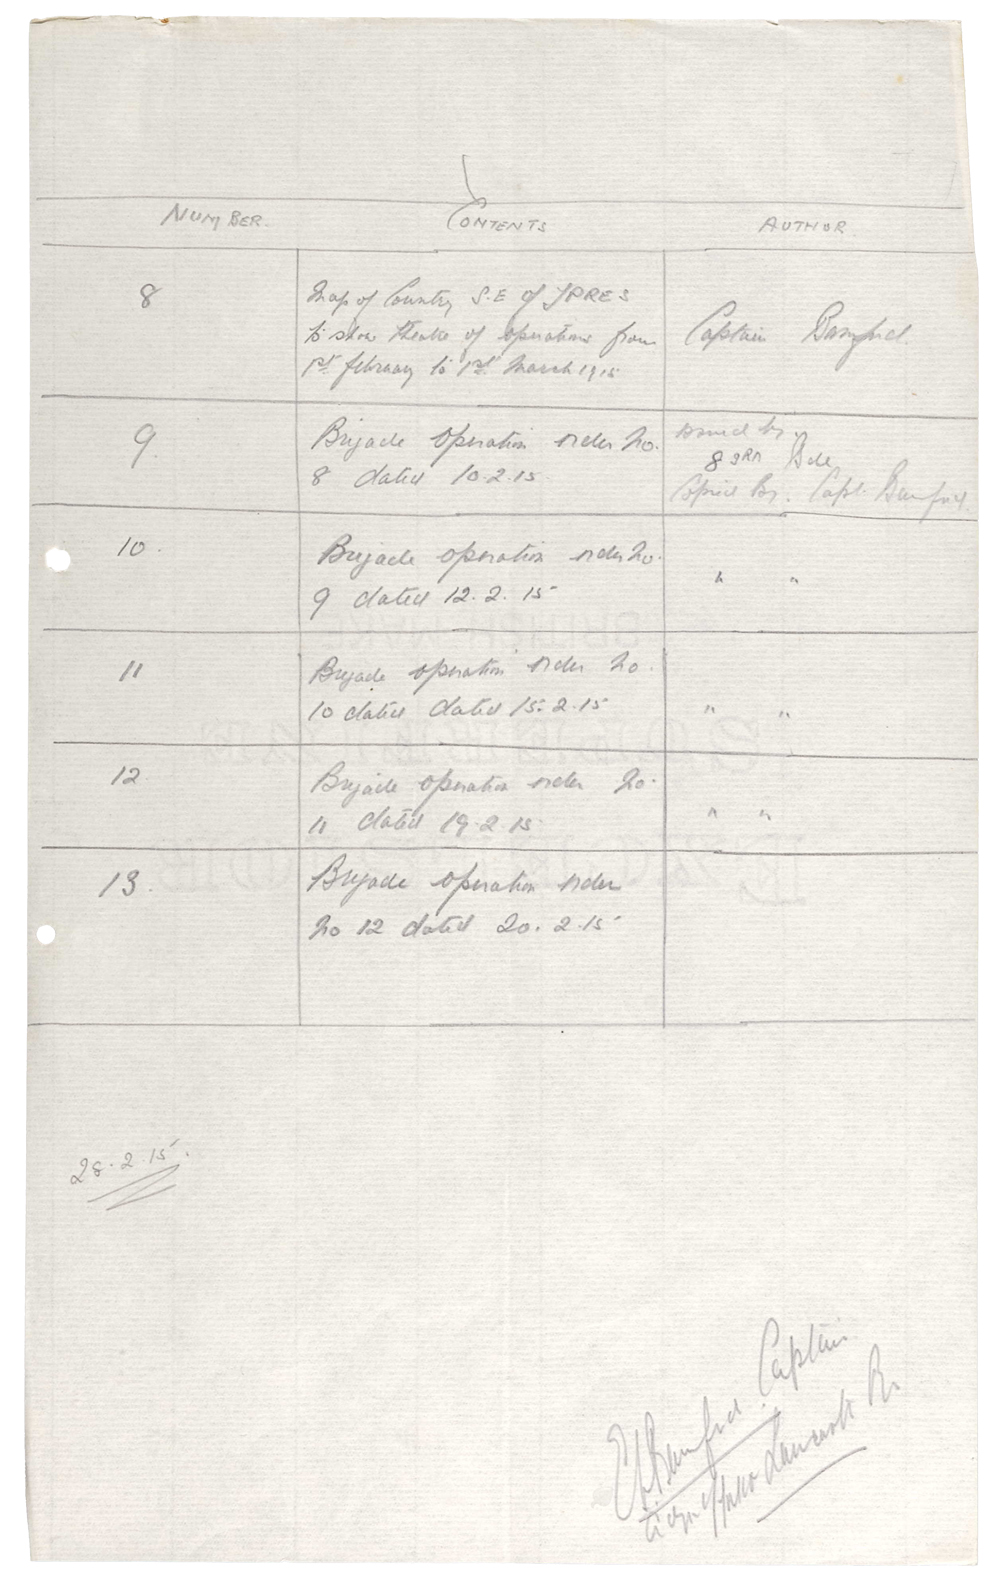 NUMBER. CONTENTS AUTHOR.
8 Map of Country S.E of YPRES
to show theatre of operations from Captain Bamford.
1st february to 1st March 1915
9. Brigade operation order No. issued by
8 dated 10.2.15. 83RD Bde
Copied By. Capt. Bamford.
10. Brigade operation order No.
9 dated 12.2.15 " "
11 Brigade operation order No.
10 dated dated 15.2.15 " "
12 Brigade operation order No.
11 dated 19.2.15 " "
13. Brigade operation order
No 12 dated 20.2.15
28.2.15.
Bamford Captain
York & Lancaster